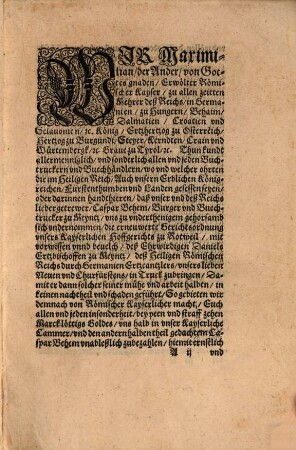 WIR Maximi-
lian/der Ander/von Got-
tes gnaden/Erwölter Römi-
scher Kayser/zu allen zeitten
Mehrer deß Reichs/in Germa-
nien/zu Hungern/Behaim/
Dalmatien/Croatien vnd
Sclauonien/ꝛc. König/Ertzhertzog zu Osterreich/
Hertzog zu Burgundi/Steyer/Kerndten/Crain vnd
Würtembergk/ꝛc Graue zu Tyrol/ꝛc. Thun kundt
allermenniglich/vnd sonderlich allen vnd jeden Buch-
truckern vnd Buchhändlern/wo vnd welcher orten
die im Heiligen Reich/Auch vnsern Erblichen König-
reichen/Fürstenthumben vnd Landen gesessen seyen/
oder darinnen handtheren/daß vnser vnd deß Reichs
lieber getrewer/Caspar Behem/Burger vnd Buch-
trucker zu Meyntz/vns zu vnderthenigem gehorsamb
sich vndernommen/die ernewerte Gerichtsordnung
vnsers Kayserlichen Hoffgerichts zu Rotweil/mit
vorwissen vnnd beuelch/deß Ehrwürdigen Daniels
Ertzbischoffen zu Meyntz/deß Heiligen Römischen
Reichs durch Germanien Ertzcantzlers/vnsers lieben
Neuen vnd Churfürstens/in Truck zubringen/Da-
mit er dann solcher seiner mühe vnd arbeit halben/in
keinen nachtheil vnd schaden geführt/So gebieten wir
demnach von Römischer Kayserlicher macht/Euch
allen vnd jeden insonderheit/bey peen vnd straff zehen
Marck lötigs Goldes/vns halb in vnser Kayserliche
Cammer/vnd den andern halben theil gedachtem Ca-
spar Behem vnableßlich zubezahlen/hiemit ernstlich
A ij vnd